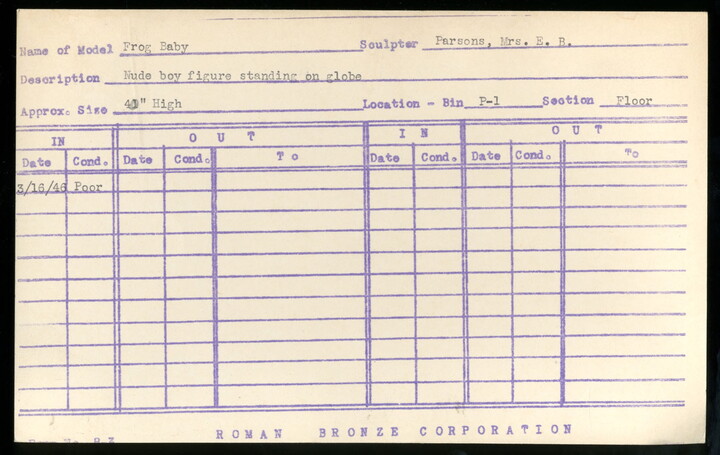 Name of Model Frog Baby Sculpter Parsons, Mrs. E. B.
Description Nude boy figure standing on globe
Approx. Size " High Location - Bin P-1 Section Floor
IN OUT IN OUT
Date Cond. Date Cond. To Date Cond. Date Cond. To
3/16/46 Poor
ROMAN BRONZE CORPORATION